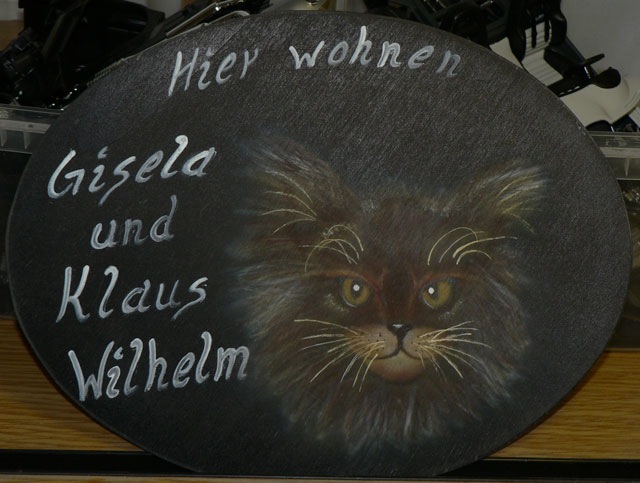 Hier wohnen
Gisela
und
Klaus
Wilhelm